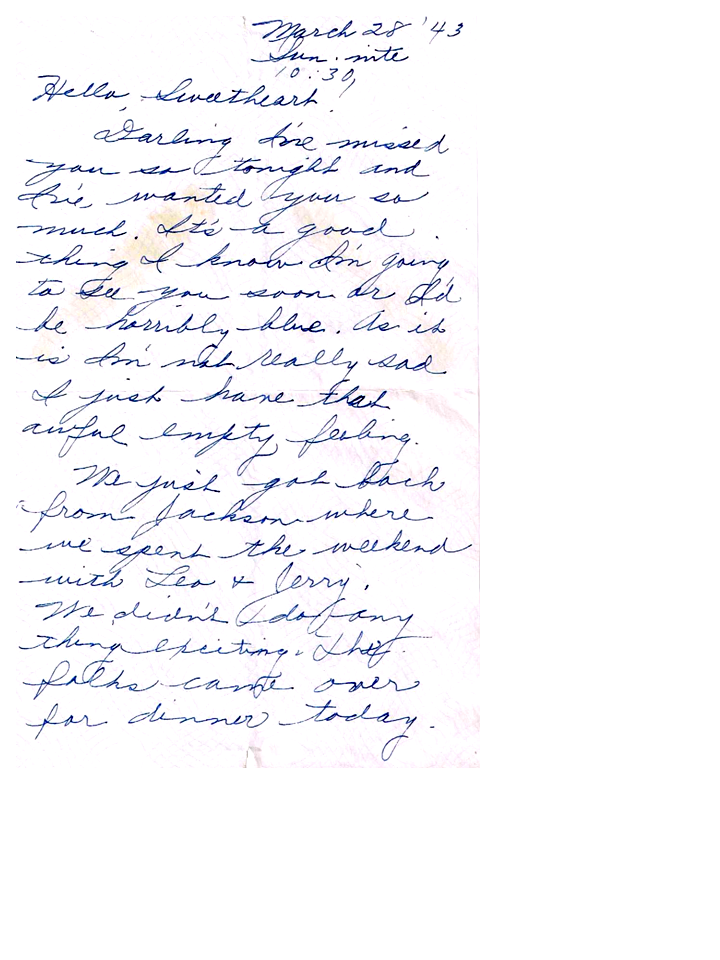 March 28 '43
Sun. nite
10:30,
Hello, Sweetheart!
Darling I've missed
you so tonight and
I've wanted you so
much. It's a good
thing I know I'm going
to see you soon or I'd
be horribly blue. As it
is I'm not really sad
I just have that
awful empty feeling.
We just got back
from Jackson where
we spent the weekend
with Leo & Jerry.
We didn't do any
thing exciting. The
folks came over
for dinner today.